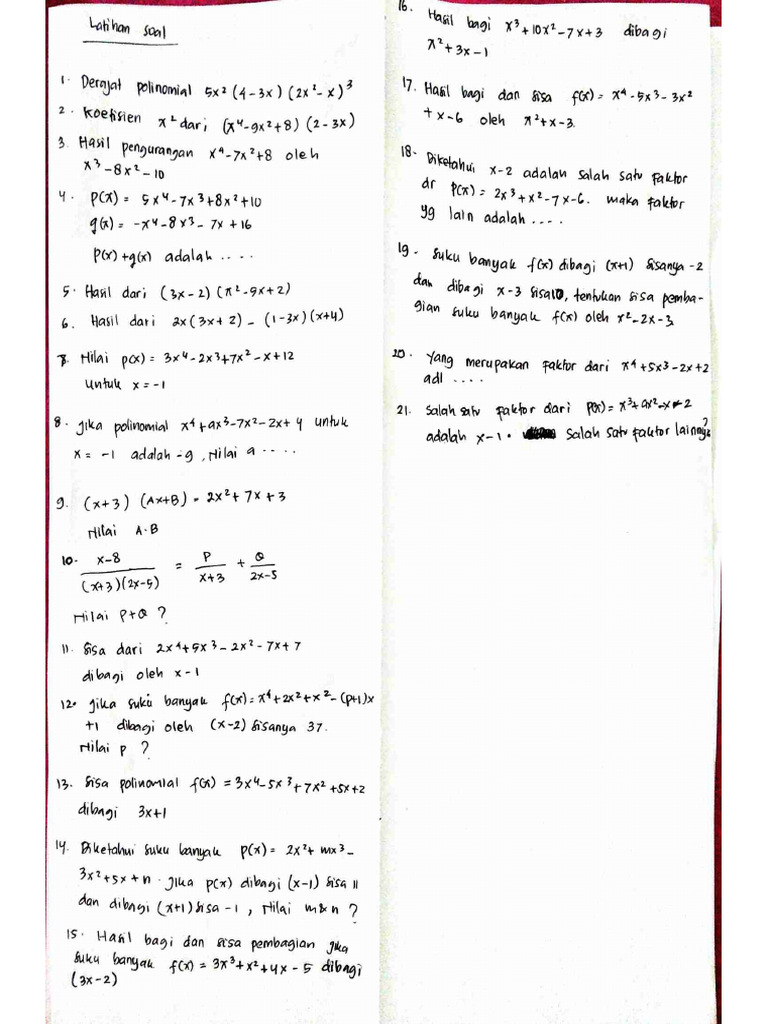 Latihan soal
1. Derajat polinomial 5x² (4-3x) (2x²-x)³
2. Koefisien x² dari; (x⁴-9x²+8) (2-3x)
3. Hasil pengurangan x⁴-7x²+8 oleh
x³-8x²-10
4. P(x) = 5x⁴-7x³+8x²+10
g(x) = -x⁴-8x³-7x+16
P(x)+g(x) adalah ....
5. Hasil dari (3x-2)(x²-9x+2)
6. Hasil dari 2x(3x+2) - (1-3x)(x+4)
7. Nilai p(x) = 3x⁴-2x³+7x²-x+12
untuk x=-1
8. Jika polinomial x⁴+ax³-7x²-2x+4 untuk
x = -1 adalah -9, Nilai a ....
9. (x+3) (Ax+B) = 2x²+7x+3
Nilai A.B
10. x-8/(x+3)(2x-5) = P/x+3 + Q/2x-5
Nilai P+Q ?
11. Sisa dari 2x⁴+5x³-2x²-7x+7
dibagi oleh x-1
12. Jika suku banyak f(x)=x⁴+2x²+x²-(p+1)x
+1 dibagi oleh (x-2) sisanya 37.
Nilai p ?
13. Sisa polinomial f(x) = 3x⁴-5x³+7x²+5x+2
dibagi 3x+1
14. Diketahui suku banyak p(x) = 2x²+ mx³-
3x²+5x+n. Jika p(x) dibagi (x-1) sisa 11
dan dibagi (x+1) sisa -1, Nilai m&n ?
15. Hasil bagi dan sisa pembagian jika
suku banyak f(x) = 3x³+x²+4x-5 dibagi
(3x-2)
16. Hasil bagi x³+10x²-7x+3 dibagi
x²+3x-1
17. Hasil bagi dan sisa f(x) = x⁴-5x³-3x²
+x-6 oleh x²+x-3.
18. Diketahui x-2 adalah salah satu faktor
dr P(x) = 2x³+x²-7x-6. maka faktor
yg lain adalah ....
19. Suku banyak f(x) dibagi (x+1) sisanya -2
dan dibagi x-3 sisa 10, tentukan sisa pemba-
gian suku banyak f(x) oleh x²-2x-3.
20. Yang merupakan faktor dari x⁴+5x³-2x+2
adl ....
21. Salah satu faktor dari P(x)=x³+ax²-x-2
adalah x-1. Salah satu faktor lainnya?